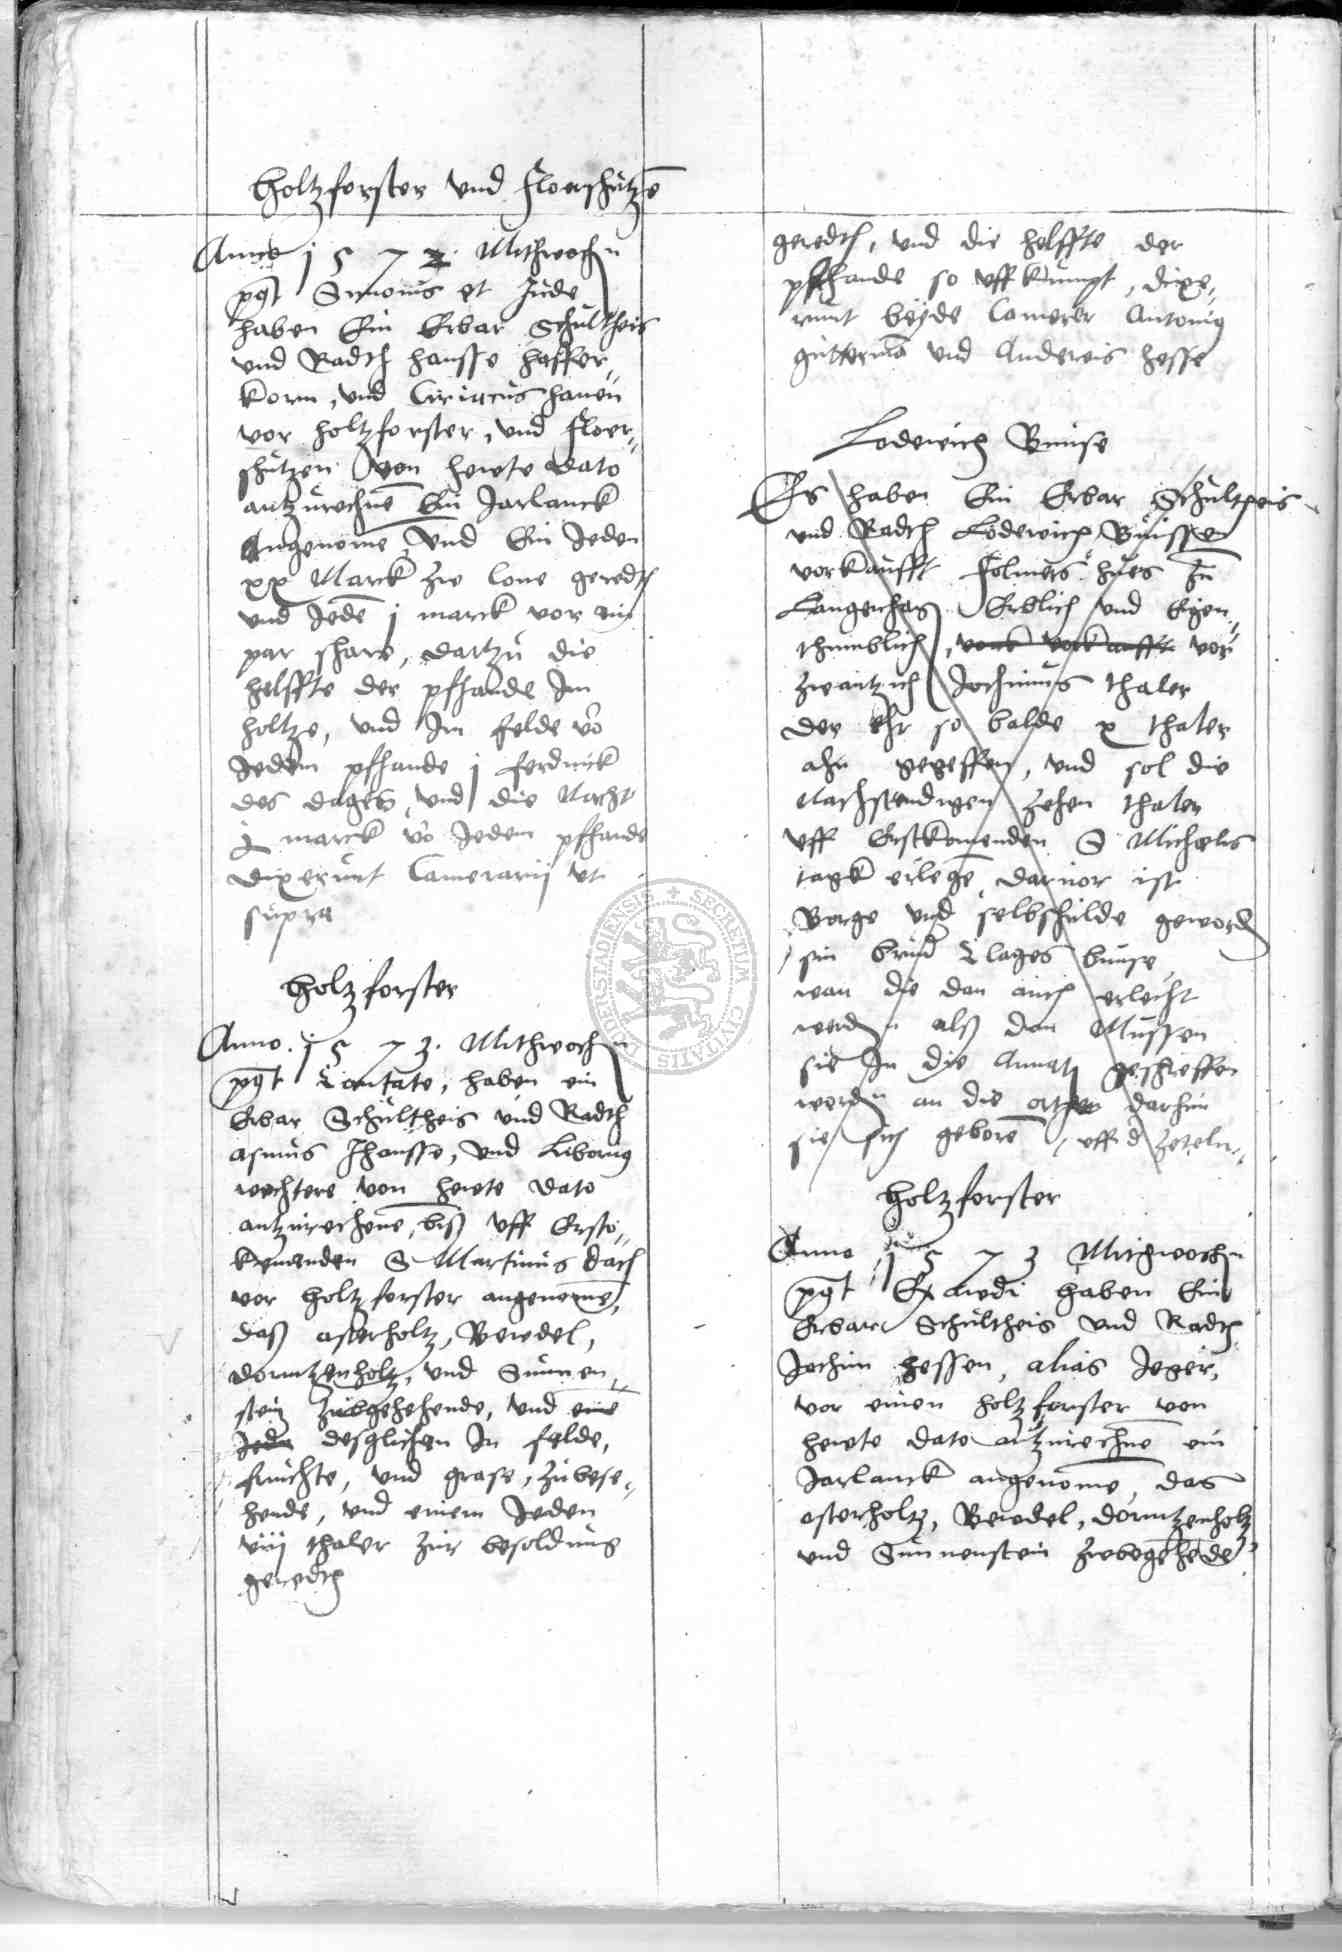 Holtzforster und Floerschutze
Anno 1572 Mithwochn
post Simonis et Jude
haben Ein Erbar Schultheis
und Radth Hansse Haffer„
korn, und Ciriacus Hanen
vor Holtzforster, und Floer„
schutzen von hewte dato
antzurechne Ein Jarlanck
Angenome, und Ein Jeden
xx Marck zw lone geredth
und Jede j marck vor ein
par schaw, dartzu die
helffte der pfhande Im
holtze, und Im felde vo
Jedem pfhande j ferdinck
des dages, und die Nacht
marck vo Jedem pfhande
dixerunt Camerarij ut
supra
Holtzforster
Anno 1573. Mithwochn
post Cantate, haben ein
Erbar Schultheis und Radth
asmus Hansse, und Liborius
wechtere von hewte dato
antzurechene, biß uff Ersto„
komenden S Martinus dach
vor Holtzforster angenome,
daß asterholtz, Bewdel,
dorntzenholtz, und Sunnen„
stein zubegehende, und eine
Jeden desglichen In felde,
fruchte, und grase, zubese„
hende, und einem Jeden
viij thaler zur besoldung
geredth
geredth, und die helffte der
pfhande so uffkumpt, dixe„
runt beyde Camerer Antonius
gutterma und Anderis Hesse
Lodewich Bunse
Es haben Ein Erbar Schultheis
und Radth Lodewich Bunssen
vorkaufft Folmers hues In
Langenhag Erblich und Eigen„
thumblich, vorkaufft vor
zwantzich Jochimus thaler
der ehr so balde x thaler
ahn gegeffen, und sol die
Nachstendigen zehen thaler
uff Erstkomenden S Michaelis
tagk erlege, darvor ist
Borge und selbschulde geworden
sin bruder Clages bunse
wan die dan auch erlecht
werden alß dan Mussen
sie In die Annat geschreffen
werden an die orther darhin
sie sich gebore, uff d zetel
Holtzforster
Anno 1573 Mithwochn
post Exaudi haben Ein
Erbar Schultheis und Radth
Jochim Hessen, alias Jeger,
vor einen Holtzforster von
hewte dato antzurechne ein
Jarlanck angenome, das
asterholtz, Bewdel, dorntzenholtz
und Sunnenstein zubegehede
SECRETUM CIVITATIS DUDERSTADIENSIS